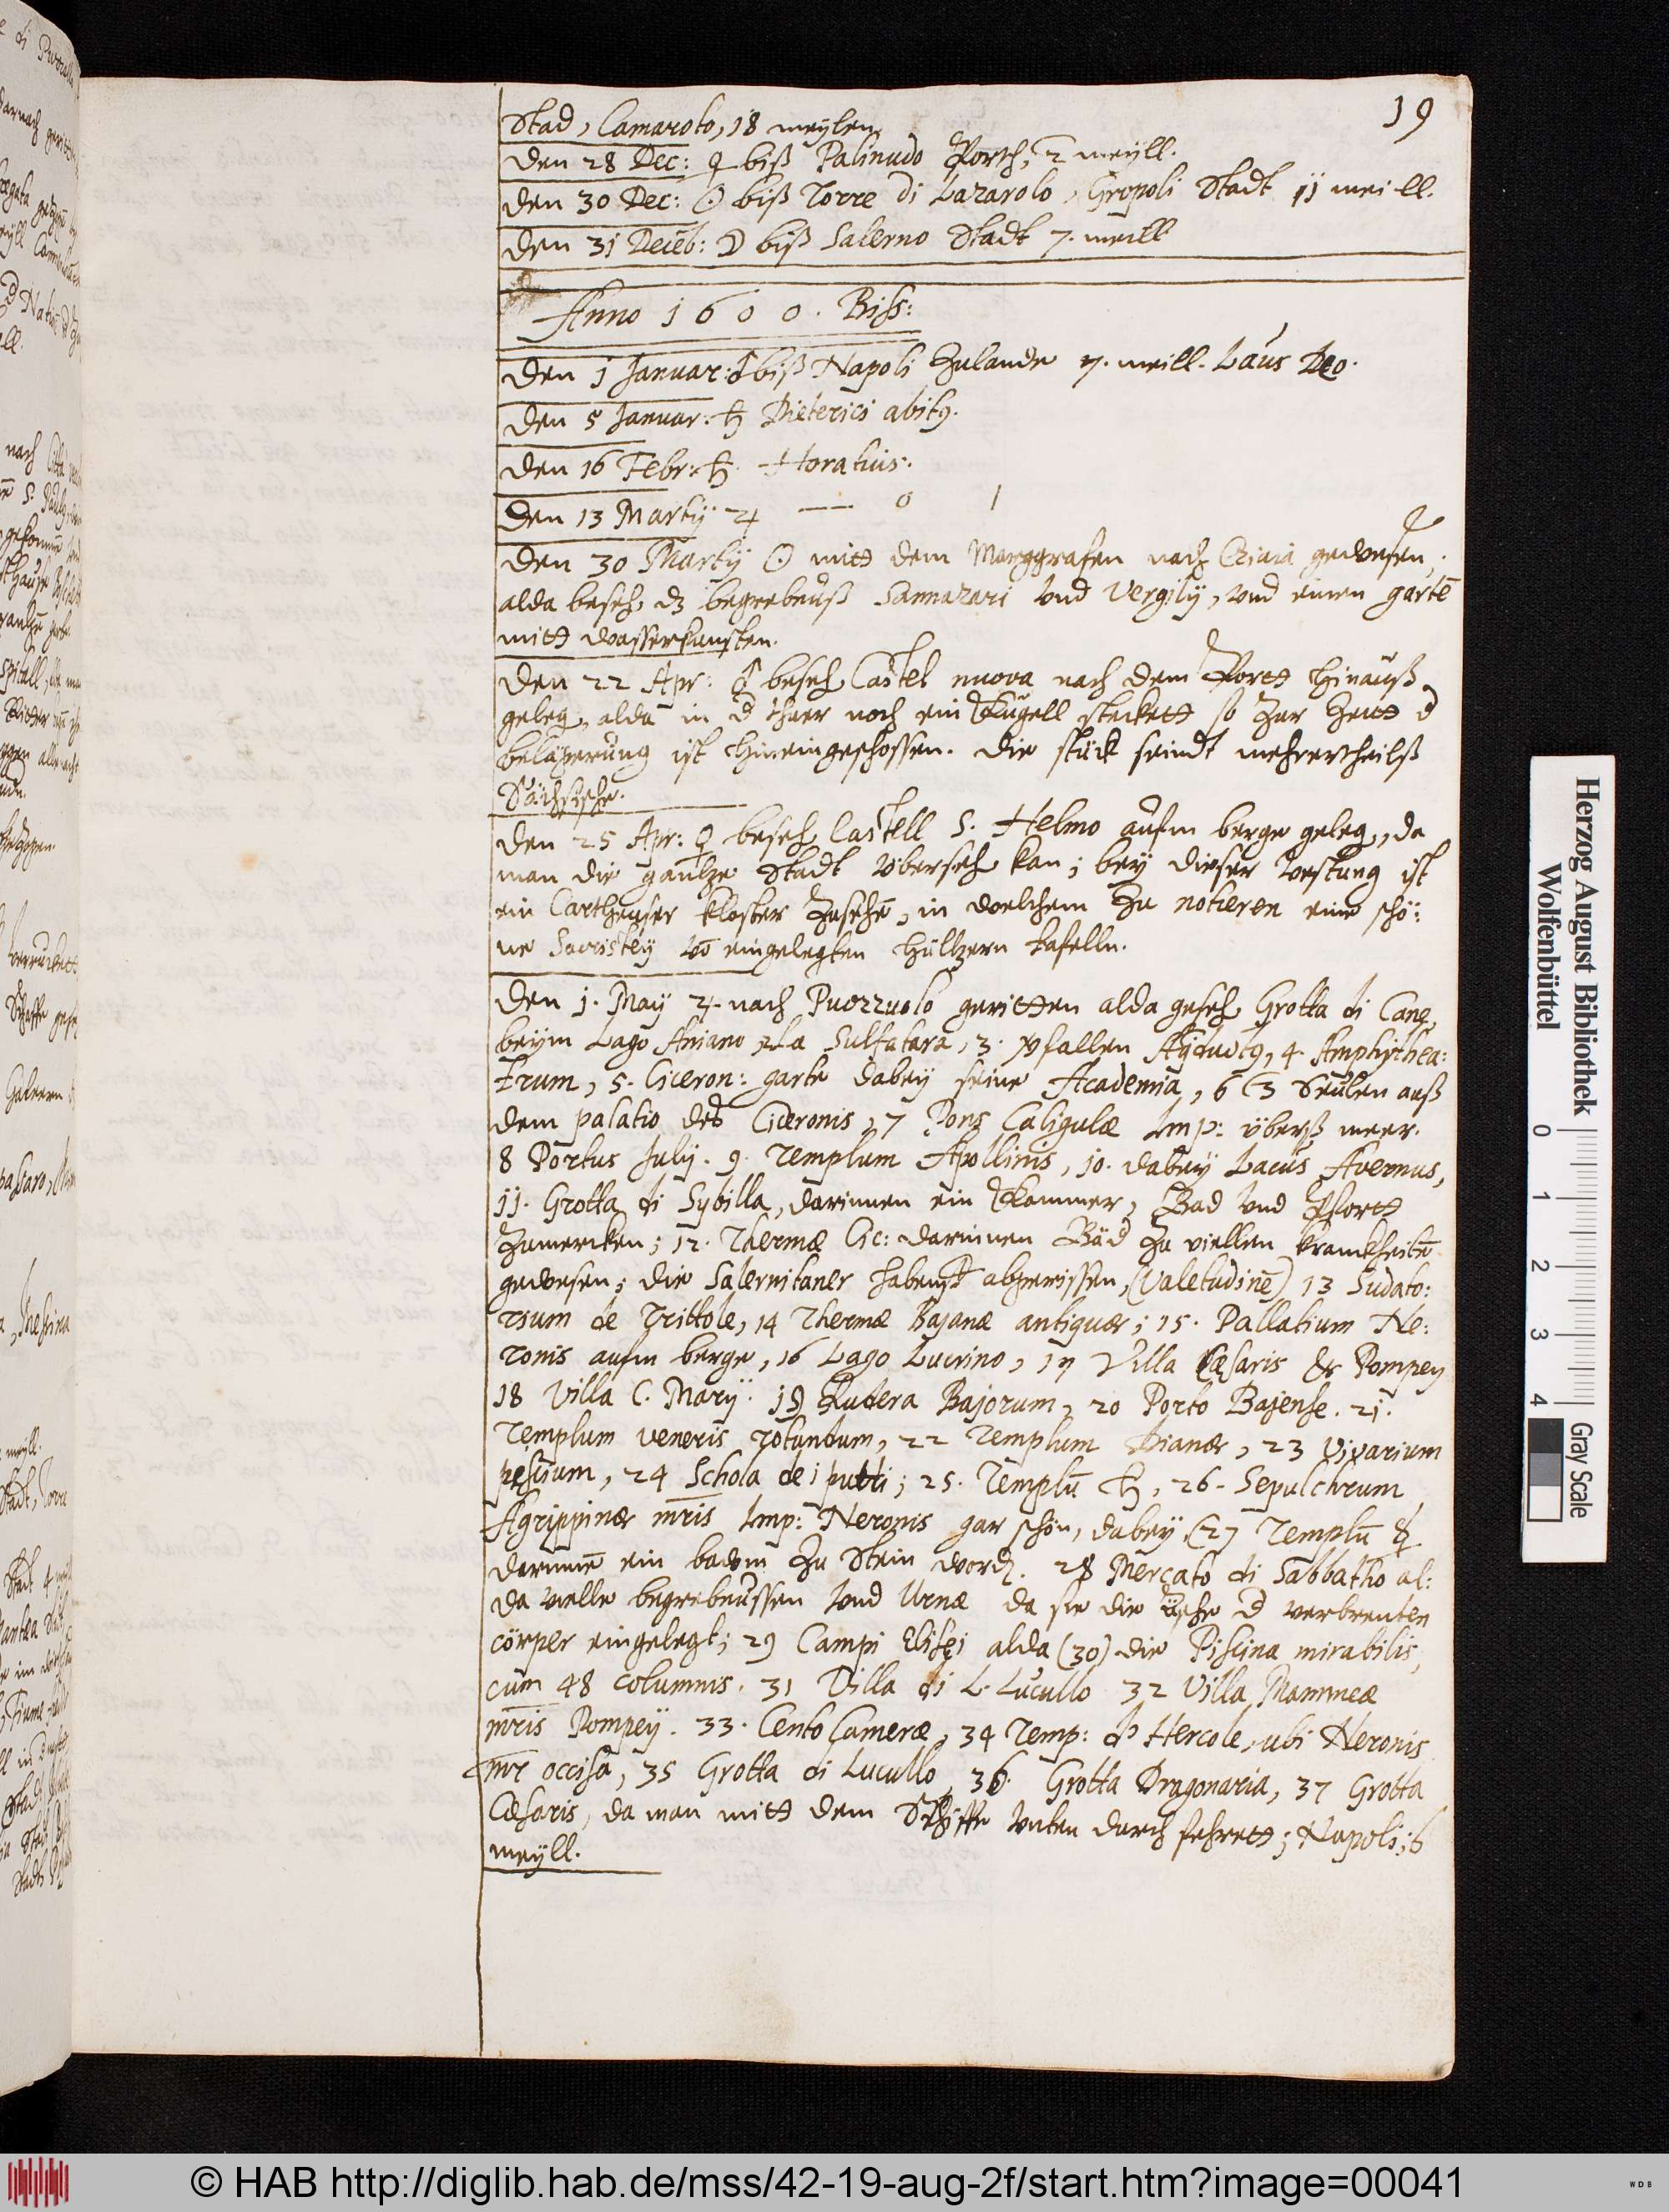 19
Stad, Camaroto, 18 meylen.
Den 28 Dec: ♀ biß Palinudo Porth, 2 meyll.
Den 30 Dec: ☉ biß Torre di Lazarolo, Gropoli Stadt 11 meill.
Den 31 Deceb: ☽ biß Salerno Stadt 7. meill
Anno 1600. Biss:
Den 1 Januar: ♂ biß Napoli zulande 7. meill. Laus Deo.
Den 5 Januar: ♄ Dieterici abitꝰ.
Den 16 Febr: ♄ Horatius.
Den 13 Martij ♃ — 0 1
Den 30 Martij ☉ mitt dem Marggrafen nach Chiaia gewesen,
alda beseh, dz begrebnuß Sannazari vnd Vergilij, vnd einen gartē
mitt wasserkunsten.
Den 22 Apr: ♂ beseh Castel nuova nach dem Portt hinauß
geleg, alda in d thuer noch ein Kugell steckett so zur zeitt d
belägerung ist hineingeschossen. die stück seindt mehrertheilß
Sächsische.
Den 25 Apr: ♀ beseh Castell S. Helmo aufm berge geleg, da
man die gantze Stadt überseh kan; bey dieser Vestung ist
ein Cartheuser kloster zusehē, in welchem zu notieren eine schö:
ne Sacristey vō eingelegten hültzern tafelln.
Den 1. May ♃. nach Puozzuolo geritten alda geseh Grotta di Cane
beym Lago Aniano 2 La Sulfatara, 3. vfallen Aquductꝰ, 4. Amphythea:
trum, 5. Ciceron: garte dabey seine Academia, 6 (3 Seulen auß
dem palatio des Ciceronis, 7 Pons Caligulæ Imp: überß meer.
8 Portus July. 9. Templum Apollinis, 10. dabey Lacus Avernus,
11. Grotta di Sybilla, darinnen ein Kammer, Bad vnd Pfortt
zumercken; 12. Thermæ Cic: darninen Bäd zu viellen kranckheitē
gewesen; die Salernitaner habenß abgerissen, (Valetudinē) 13 Sudato:
rium de Trittole, 14 Thermæ Bajanæ antiquæ; 15. Pallatium Ne:
ronis aufm berge, 16 Lago Lucrino, 17 Villa Cæsaris & Pompey
18 Villa C. Marij. 19 Rudera Bajorum, 20 Porto Bajense. 21.
Templum veneris rotundum, 22 Templum Dianæ, 23 vivarium
pescium, 24 Schola dei putti; 25. Templū ♄, 26. Sepulchrum
Agrippinæ mris Imp: Neronis gar schön, dabey (27 Templū ☿
darinnē ein bawm zu Stein word. 28 Mercato di Sabbatho al:
da vielle begrebnussen vnd Urnæ da sie die äsche d verbrenten
cörper eingelegt; 29 Campi Elisei alda (30) die Piscina mirabilis,
cum 48 columnis. 31 Villa di L. Lucullo 32 Villa Mammeæ
mris Pompeij. 33. Cento Cameræ, 34 Temp: d' Hercole, ubi Neronis
mr occisa, 35 Grotta di Lucullo, 36. Grotta Dragonaria, 37 Grotta
Cæsaris, da man mitt dem Schiffe vnten durch fehrett; Napoli; 6
meyll.
Herzog August Bibliothek
Wolfenbüttel
0 1 2 3 4
Gray Scale
© HAB http://diglib.hab.de/mss/42-19-aug-2f/start.htm?image=00041
WDB